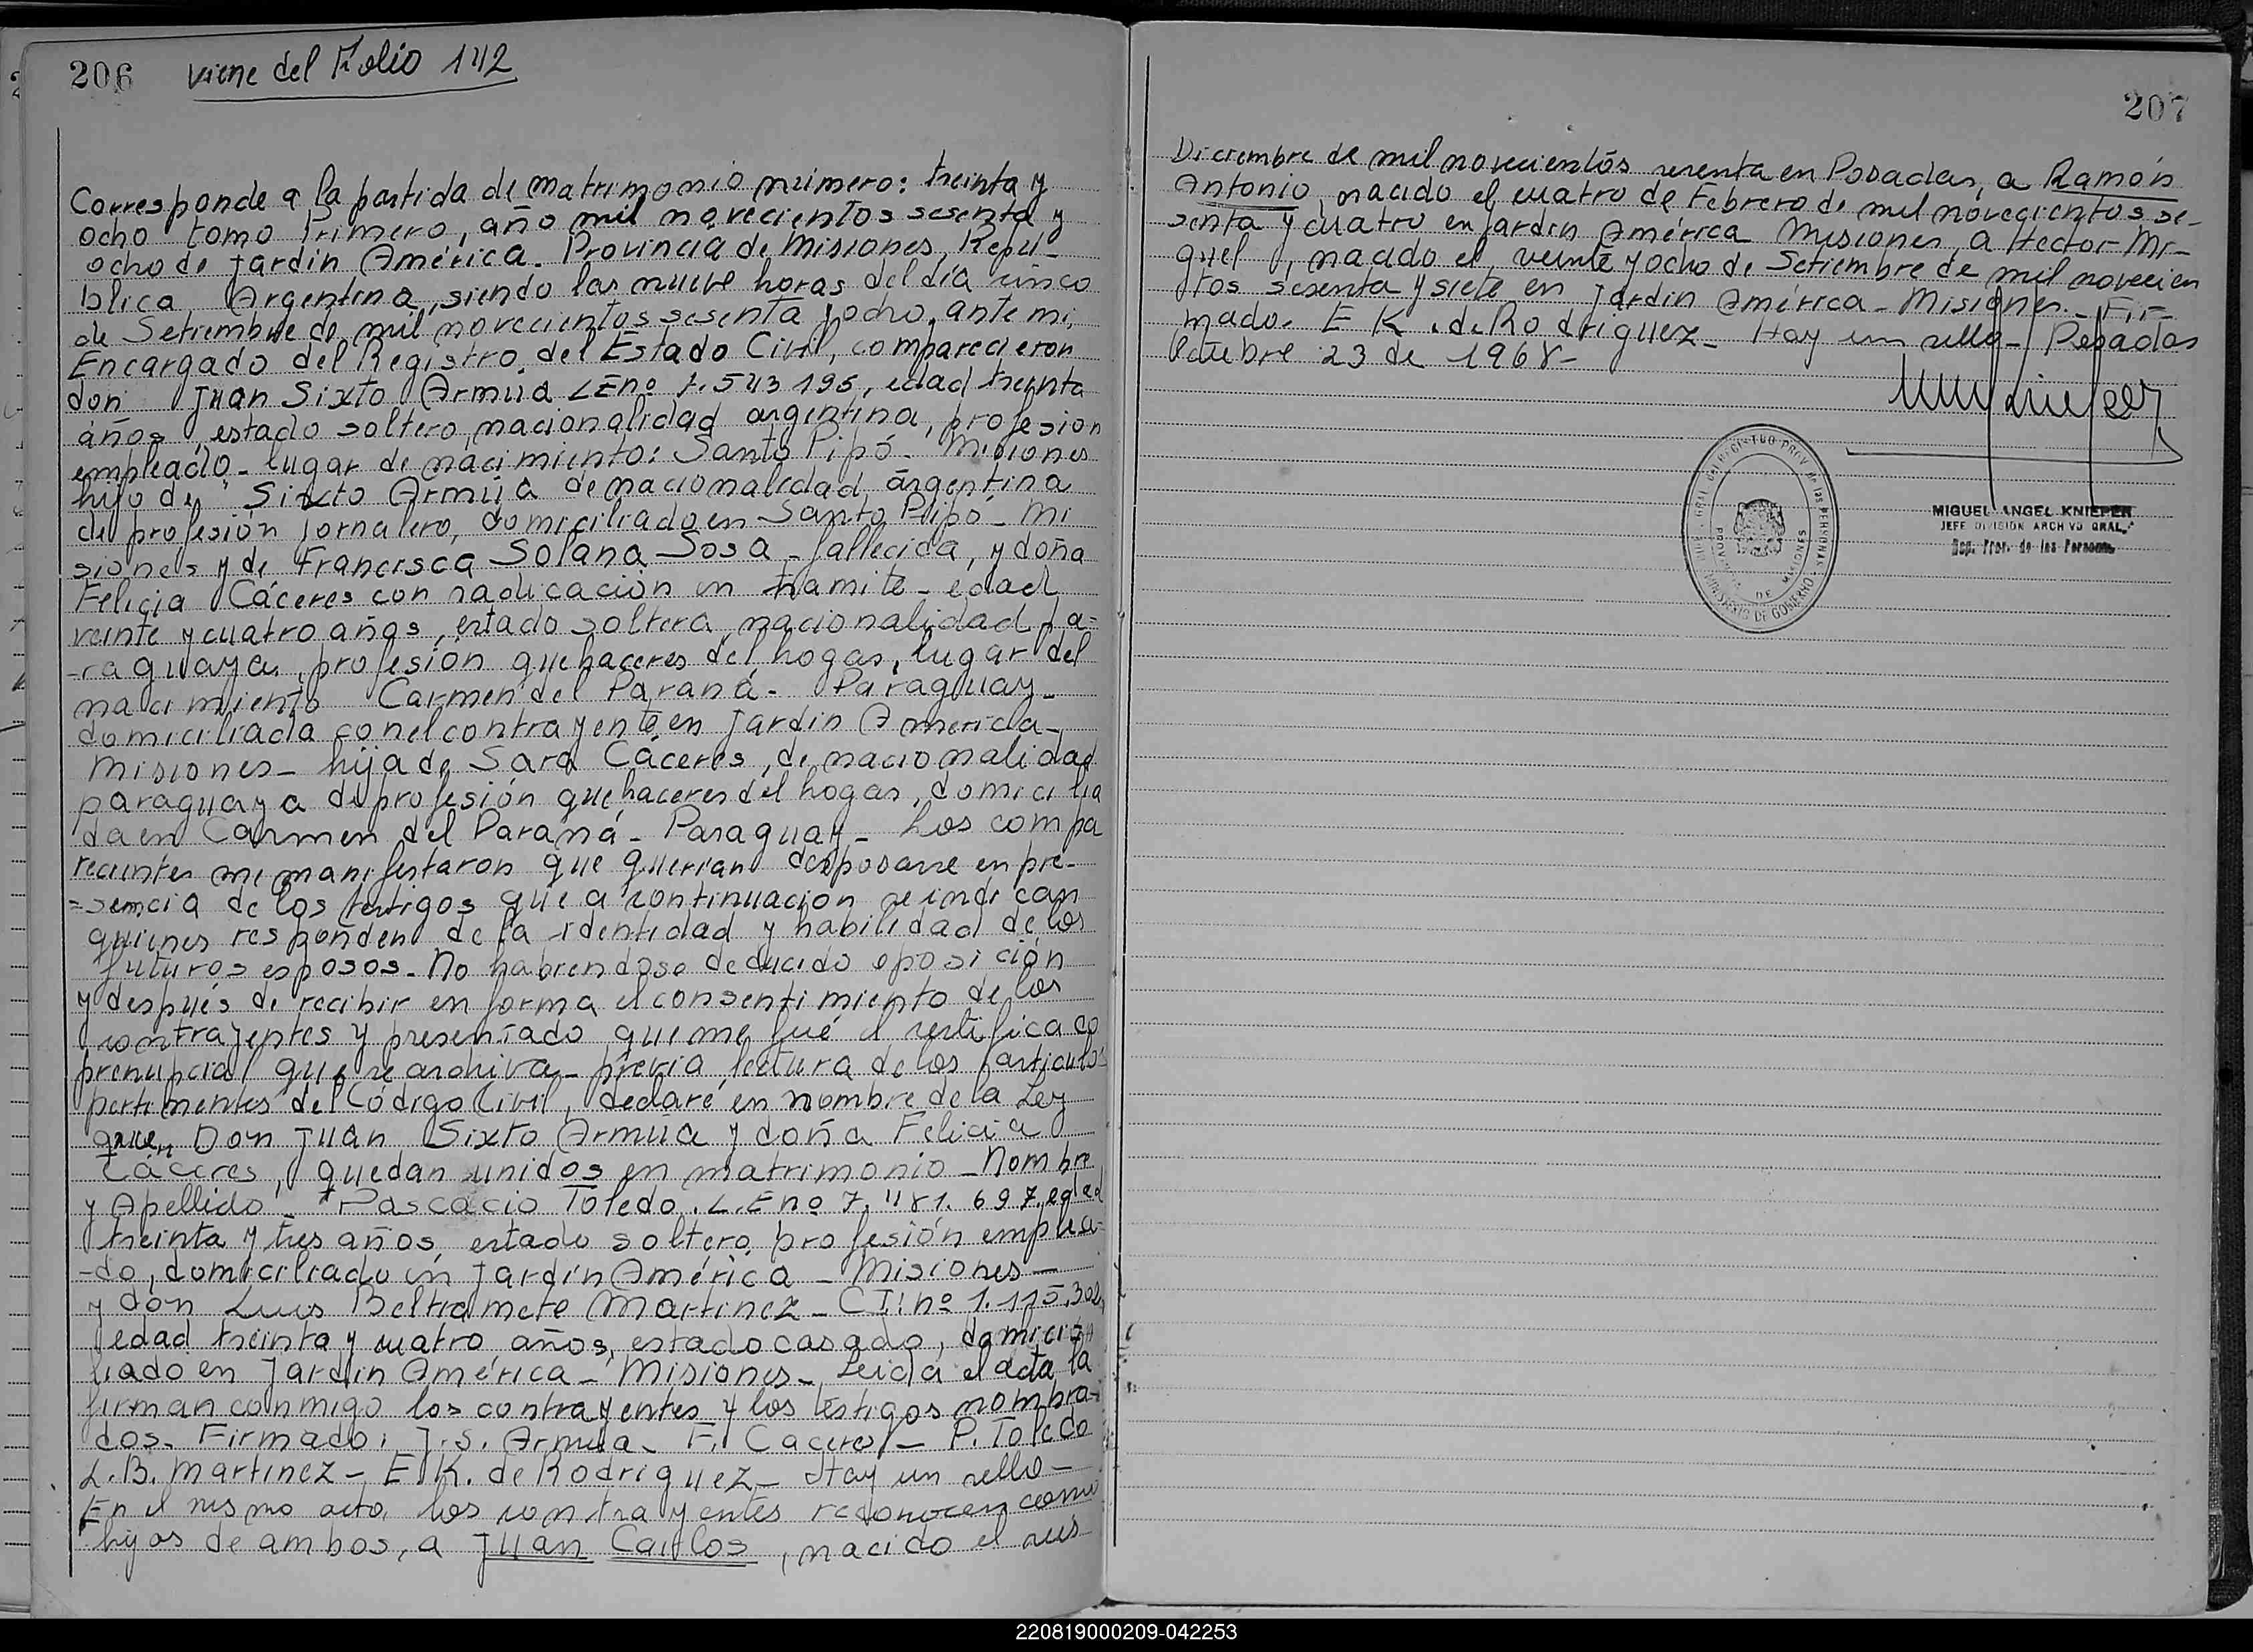 206 viene del Folio 142
Corresponde a la partida de matrimonio número: treinta y
ocho tomo Primero, año mil novecientos sesenta y
ocho de Jardin América. Provincia de Misiones, Repú-
blica Argentina, siendo las nueve horas del día cinco
de Setiembre de mil novecientos sesenta y ocho, ante mi,
Encargado del Registro del Estado Civil, comparecieron
don Juan Sixto Armúa LEnº 7.543 196, edad treinta
años, estado soltero, nacionalidad argentina, profesion
empleado - lugar de nacimiento: Santo Pipó - Misiones
hijo de Sixto Armúa de nacionalidad argentina
de profesión jornalero, domiciliado en Santo Pipó - Mi
siones y de Francisca Solana Sosa - fallecida, y doña
Felicia Cáceres con radicación en tramite - edad
veinte y cuatro años, estado soltera, nacionalidad pa=
-raguaya, profesión quehaceres del hogar, lugar del
nacimiento Carmen del Paraná - Paraguay -
domiciliada con el contrayente en Jardin America -
Misiones - hija de Sara Cáceres, de nacionalidad
paraguaya de profesión quehaceres del hogar, domicilia
da en Carmen del Paraná - Paraguay - Los compa
recientes me manifestaron que querian desposarse en pre-
=sencia de los testigos que a continuacion se indican
quienes responden de la identidad y habilidad de los
futuros esposos - No habiendose deducido oposición
y después de recibir en forma el consentimiento de los
contrayentes y presentado que me fué el certificado
prenupcial que se archiva - previa lectura de los articulos
pertinentes del Código Civil, declaré en nombre de la Ley
que, Don Juan Sixto Armúa y doña Felicia
Cáceres, quedan unidos en matrimonio - Nombre
y Apellido Pascacio Toledo. L.E nº 7.481.697, edad
treinta y tres años, estado soltero, profesión emplea=
-do, domiciliado en Jardín América - Misiones -
y don Luis Beltramete Martinez - CI: nº 1.115.302,
edad treinta y cuatro años, estado casado, domici=
liado en Jardin América - Misiones - Leida el acta la
firman conmigo los contrayentes y los testigos nombra-
dos. Firmado: J.S. Armúa - F. Caceres - P. Toledo
L.B. Martinez - E K. de Rodriguez - Hay un sello -
En el mismo acto, los contrayentes reconocen como
hijos de ambos, a Juan Carlos, nacido el seis
207
Diciembre de mil novecientos sesenta en Posadas, a Ramón
Antonio, nacido el cuatro de Febrero de mil novecientos se-
senta y cuatro en Jardin América Misiones, a Hector Mi-
guel, nacido el veinte y ocho de Setiembre de mil novecien
tos sesenta y siete en Jardin América - Misiones - Fir=
mado. E K. de Rodriguez - Hay un sello - Posadas
Octubre 23 de 1968 -
MIGUEL ANGEL KNIEPER
JEFE DIVISION ARCHIVO GRAL.
Reg. Prov. de las Personas
PROVINCIA DE MISIONES
MINISTERIO DE GOBIERNO
220819000209-042253